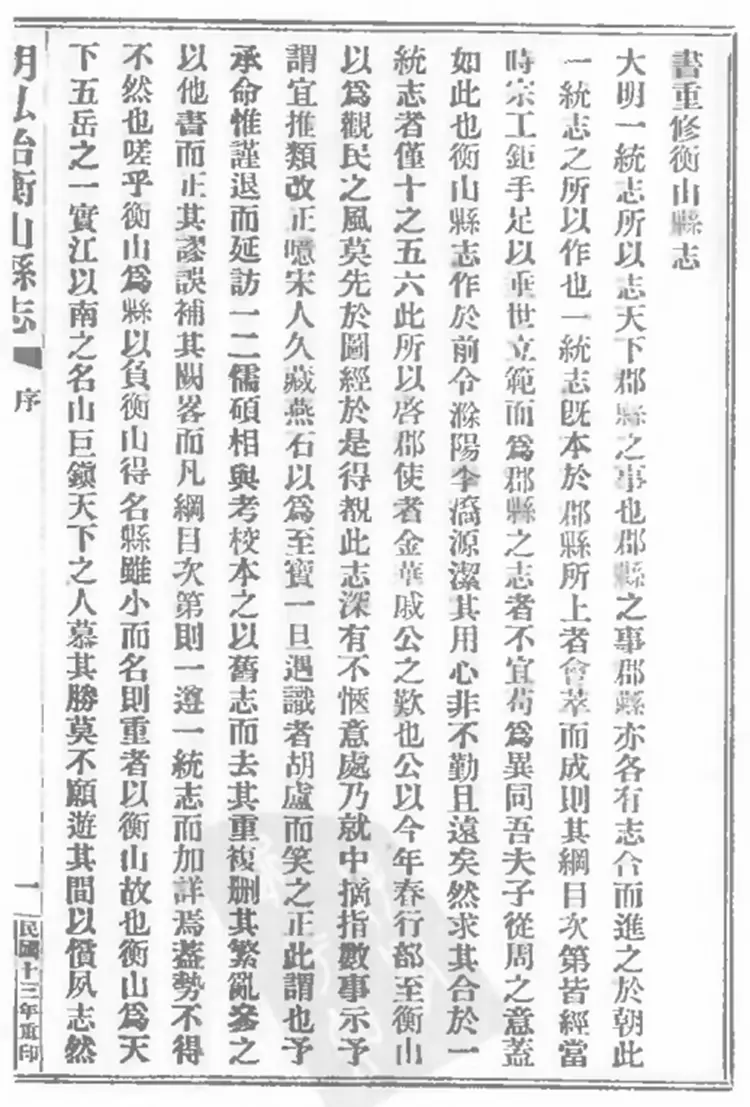 書重修衡山縣志
大明一統志所以志天下郡縣之事也郡縣之事郡縣亦各有志合而進之於朝此
一統志之所以作也一統志既本於郡縣所上者會萃而成則其綱目次第皆經當
時宗工鉅手足以垂世立範而為郡縣之志者不宜苟為異同吾夫子從周之意蓋
如此也衡山縣志作於前令滁陽李源潔其用心非不勤且遠矣然求其合於一
統志者僅十之五六此所以啓郡使者金華戚公之歎也公以今年春行部至衡山
以為觀民之風莫先於圖經於是得覩此志深有不愜意處乃就中摘指數事示予
謂宜推類改正噫宋人久藏燕石以為至寶一旦遇識者胡盧而笑之正此謂也予
承命惟謹退而延訪一二儒碩相與考校本之以舊志而去其重複刪其繁亂叅之
以他書而正其謬誤補其闕畧而凡綱目次第則一遵一統志而加詳焉蓋勢不得
不然也嗟乎衡山為縣以負衡山得名縣雖小而名則重者以衡山故也衡山為天
下五岳之一實江以南之名山巨鎮天下之人慕其勝莫不願遊其間以償夙志然
明弘治衡山縣志
序
一
民國十三年重印